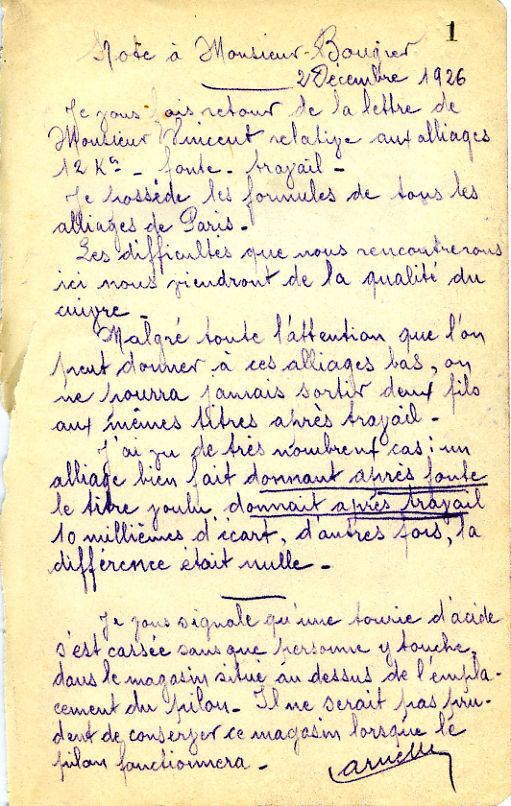 1
Note à Monsieur Bougrer
2 Décembre 1926
Je vous fais retour de la lettre de
Monsieur Vincent relative aux alliages
12 Kts - fonte - travail -
Je possède les formules de tous les
alliages de Paris -
Les difficultés que nous rencontrerons
ici nous viendront de la qualité du
cuivre -
Malgré toute l'attention que l'on
peut donner à ces alliages bas, on
ne pourra jamais sortir deux fils
aux mêmes titres après travail -
J'ai vu de très nombreux cas : un
alliage bien fait donnant après fonte
le titre voulu donnait après travail
10 millièmes d'écart, d'autres fois, la
différence était nulle -
Je vous signale qu'une tourie d'acide
s'est cassée sans que personne y touche,
dans le magasin situé au dessus de l'empla-
cement du pilon - Il ne serait pas pru-
dent de conserver ce magasin lorsque le
pilon fonctionnera -